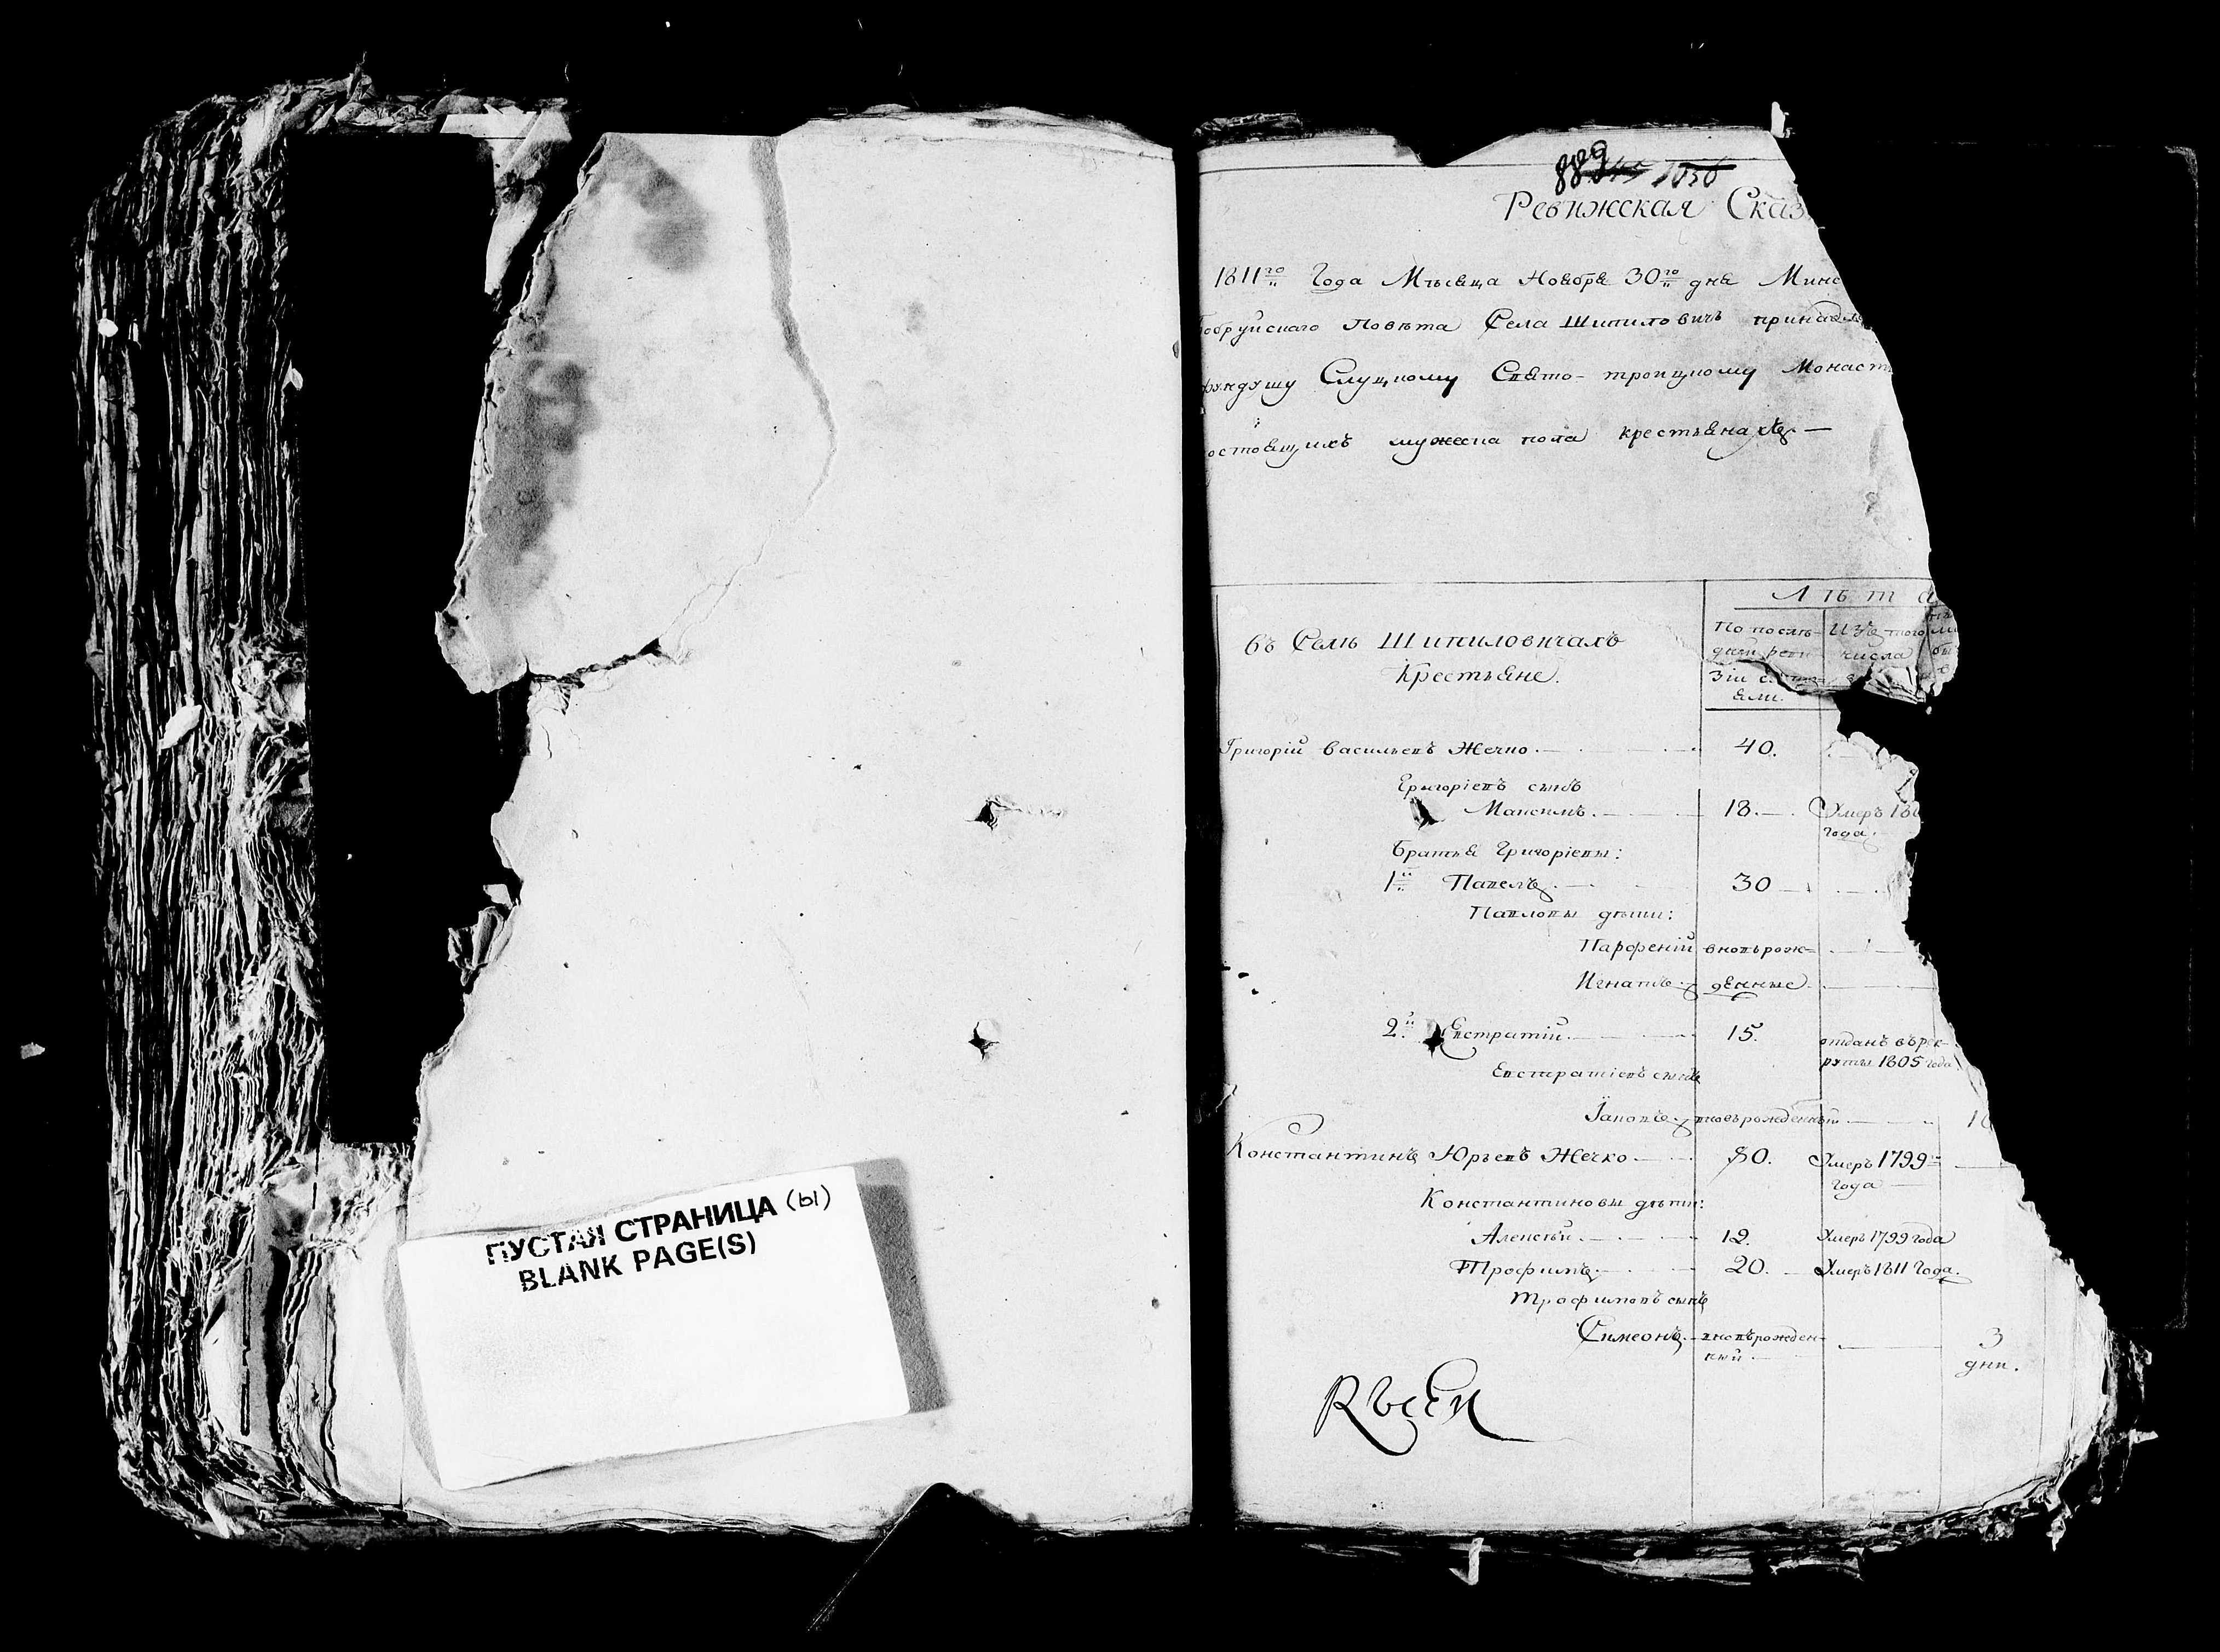 ПУСТАЯ СТРАНИЦА (ы)
BLANK PAGE(S)
889
1036
Ревижская Сказ
1811го Года Мѣсяца Ноября 30го дня Минс
обруйскаго Повѣта Села Шипиловичъ принадле
фундушу Слуцкому Свято-троицкому Монаст
остоящихъ мужеска пола крестьянахъ —
Лѣта
Въ Селѣ Шипиловичахъ
Крестьяне.
По послѣ-
дней реви-
зіи сост
яли.
Изъ того
числа
Григорій Васильевъ Жечко 40.
Григоріевъ сынъ
Максимъ. 18. Умеръ 180
года.
Братья Григоріевы:
1й Павелъ 30
Павловы дѣти:
Парфеній вновьрож-
Игнатъ денные
2й Евстратій 15. отданъ върек-
руты 1805 года
Евстратіевъ сынъ
Іаковъ вновьрожденный 1
Константинъ Юрьевъ Жечко 80. Умеръ 1799
года
Константиновы дѣти:
Алексѣй 12. Умеръ 1799 года
Трофимъ 20. Умеръ 1811 Года.
Трофимовъ сынъ
Симеонъ вновьрожден-
ный 3
дни.